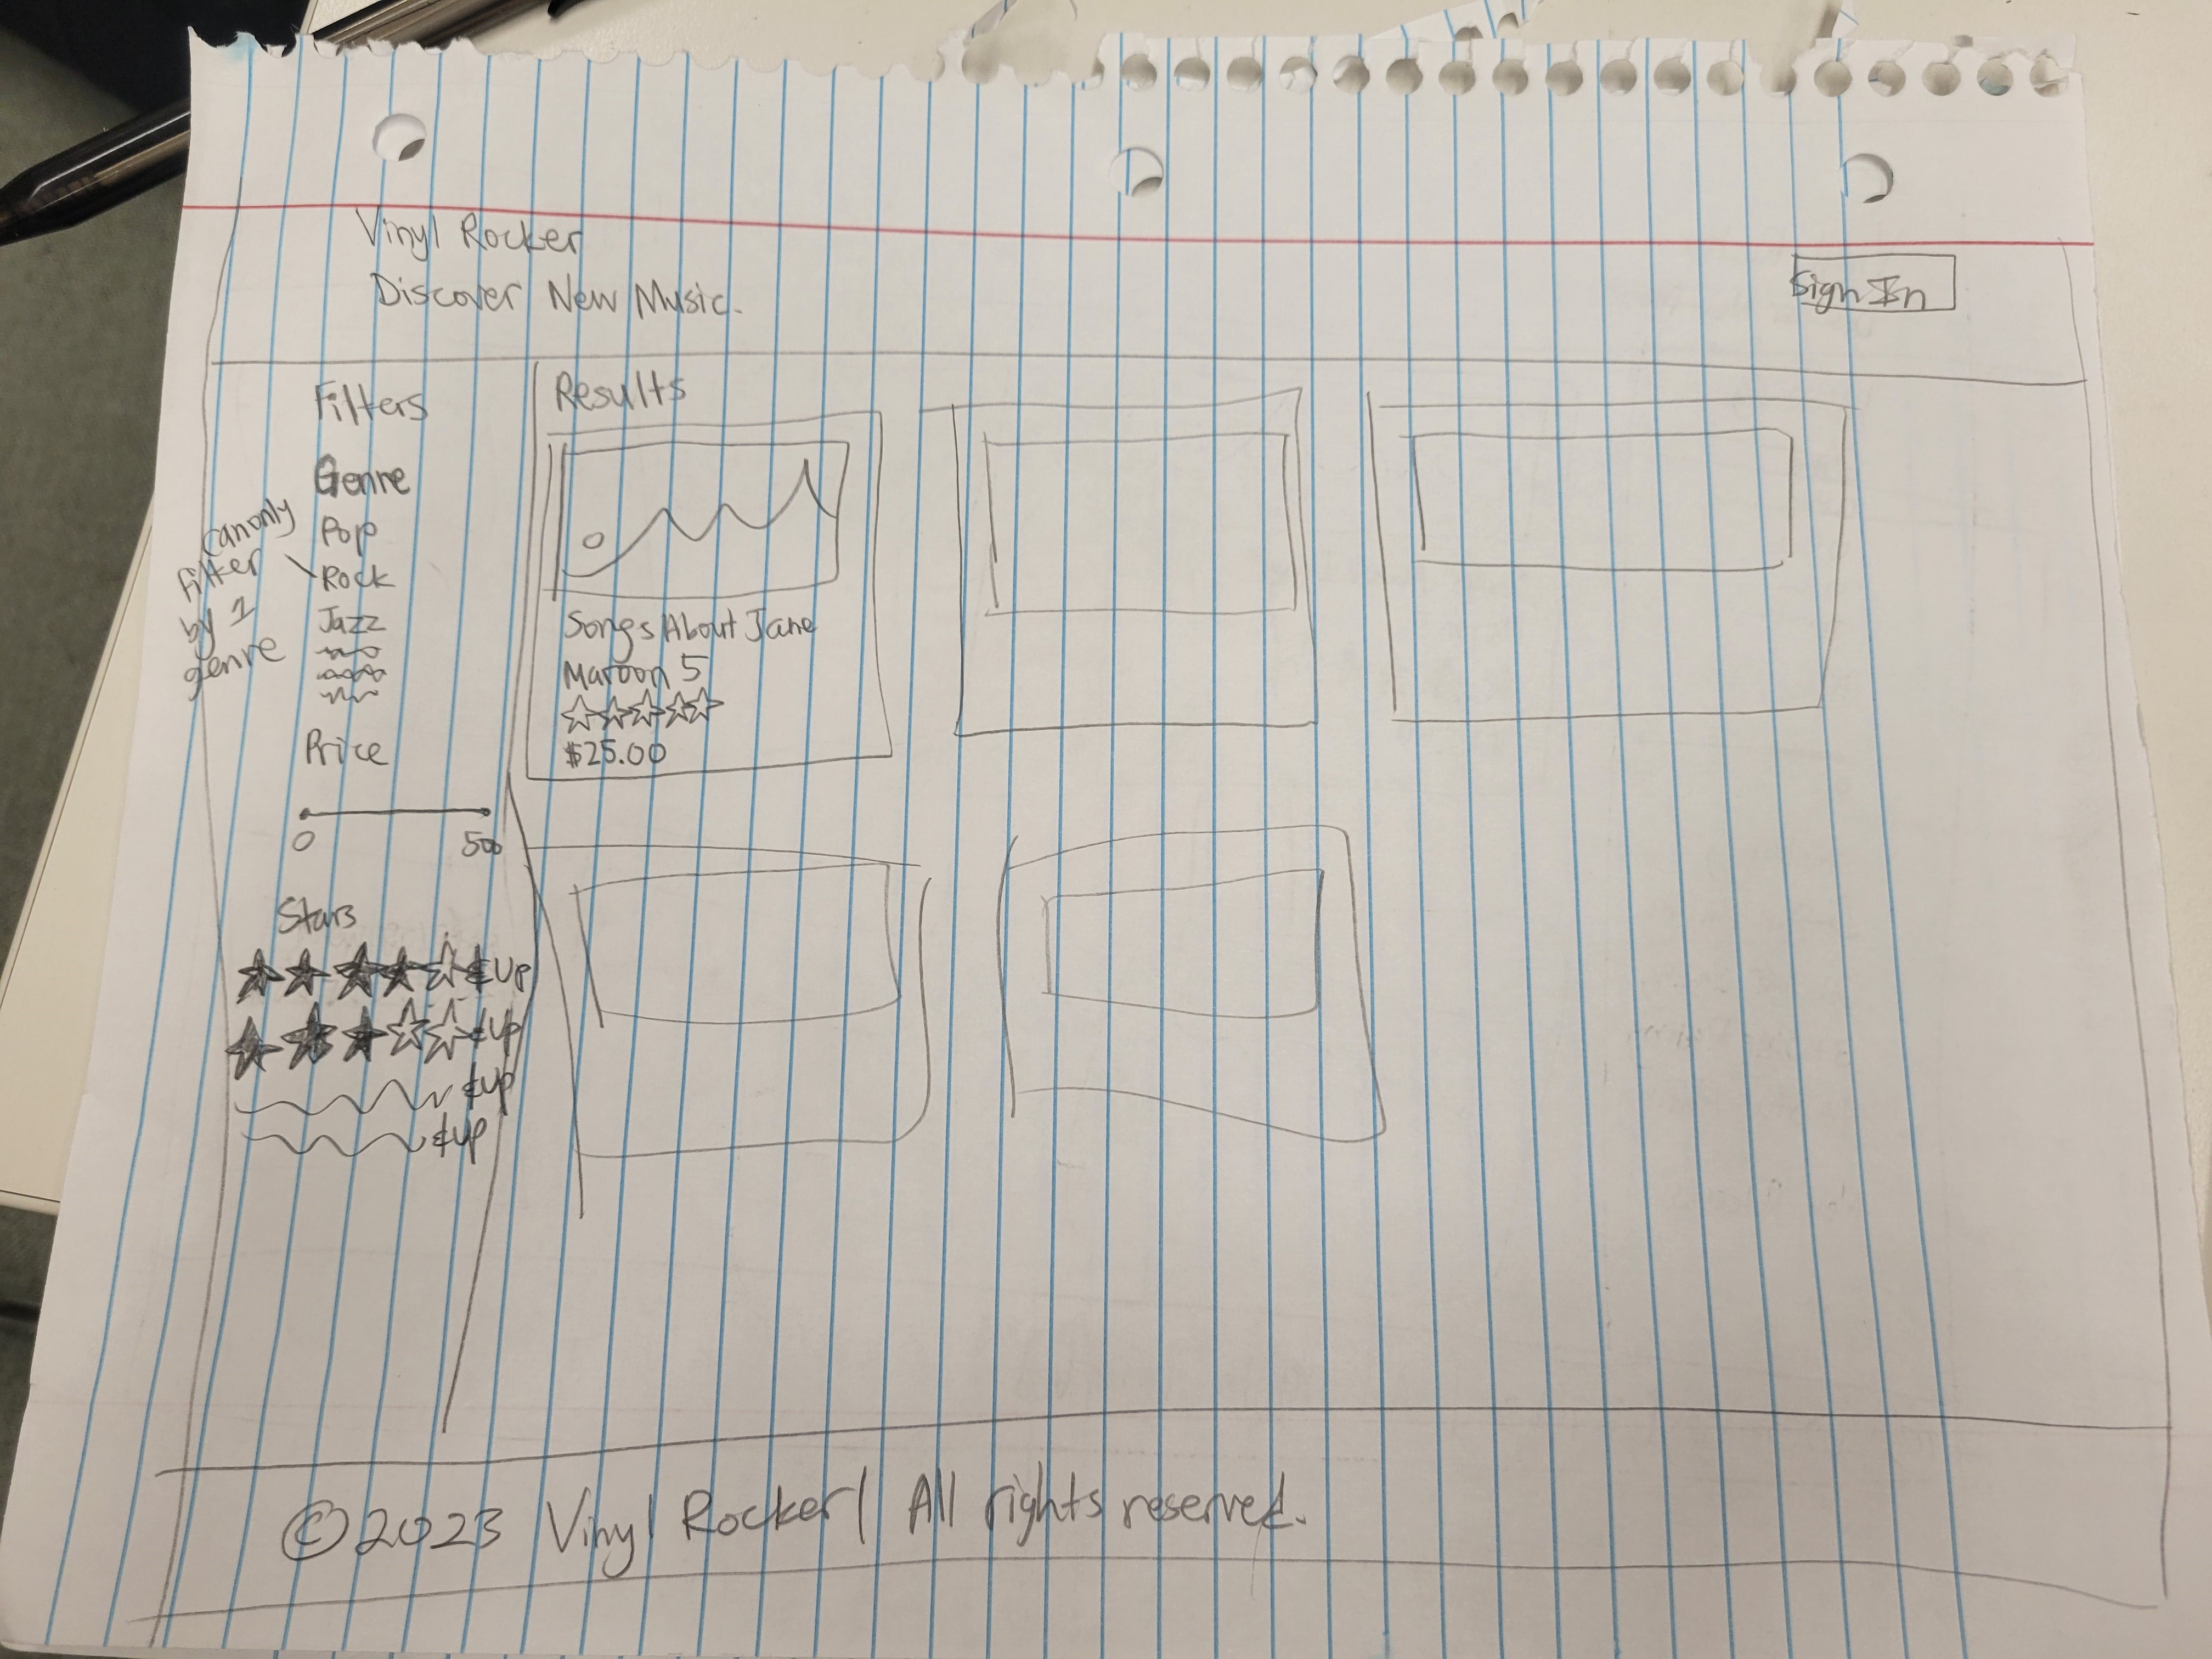 Vinyl Rocker
Discover New Music.
Sign In
Filters
Genre
Pop
Rock
Jazz
can only
filter
by 1
genre
Price
0
500
Stars
& Up
& up
& up
& up
Results
Songs About Jane
Maroon 5
$25.00
©2023 Vinyl Rocker | All rights reserved.